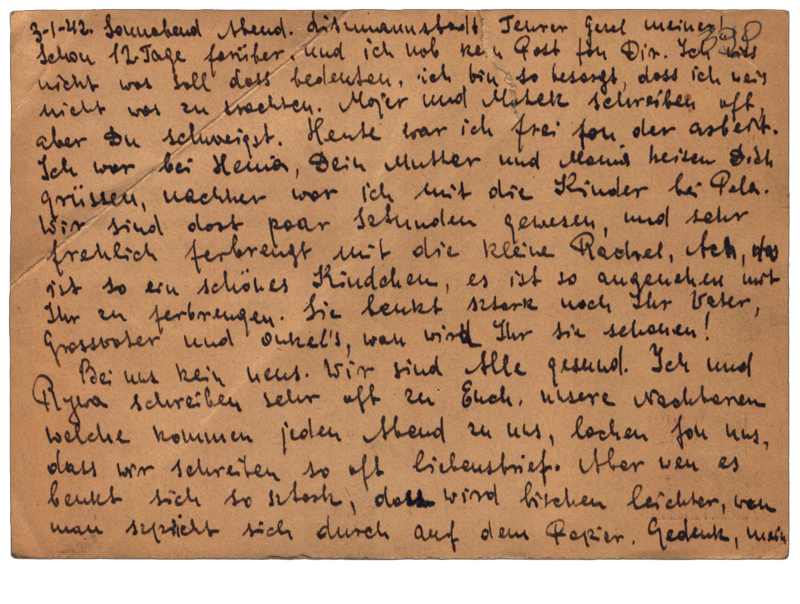 3-1-42. Sonnabend Abend. Litzmannstadt Teurer Genel meiner! 398
Schon 12 Tage forüber, und ich hob kein Post fon Dir. Ich weis
nicht was soll dass bedeuten, ich bin so besorgt, dass ich weis
nicht was zu trachten. Majer und Motek schreiben oft,
aber Du schweigst. Heute war ich frei fon der arbeit.
Ich war bei Henia, Dein Mutter und Mania heisen Dich
grüssen, nachher war ich mit die Kinder bei Pela.
Wir sind dort paar Sztunden gewesen, und sehr
frehlich ferbrengt mit die kleine Rachel, Ach, das
ist so ein schönes Kindchen, es ist so angenehen mit
Ihr zu ferbrengen. Sie benkt sztark noch Ihr Vater,
Grossvater und Onkel's, wan wird Ihr sie schonen!
Bei uns kein neus. Wir sind Alle gesund. Ich und
Rywa schreiben sehr oft zu Euch. unsere Nachbaren
welche kommen jeden Abend zu uns, lachen fon uns,
dass wir schreiben so oft liebensbrief. Aber wen es
benkt sich so sztark, dass wird bischen leichter, wen
man szpricht sich durch auf dem Papier. Gedenk, mein